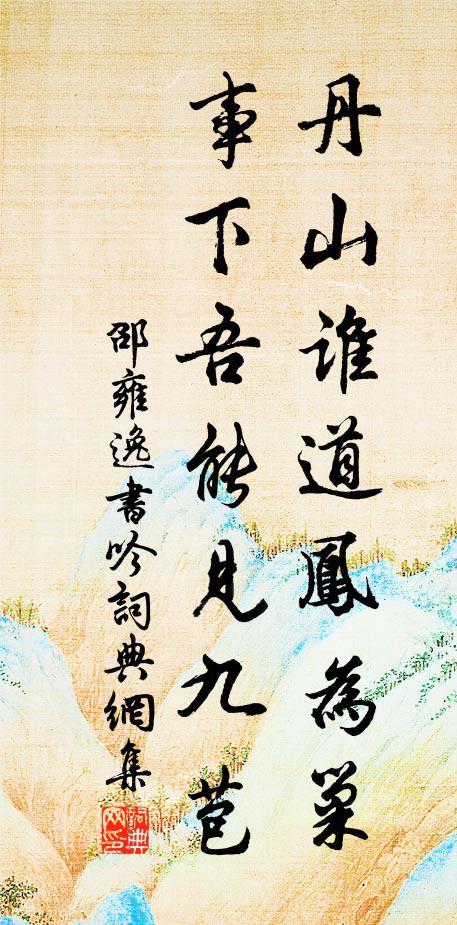 丹山誰道鳳為巢
事下吾能見九苞
邵雍逸書吟詞典網集
詞典